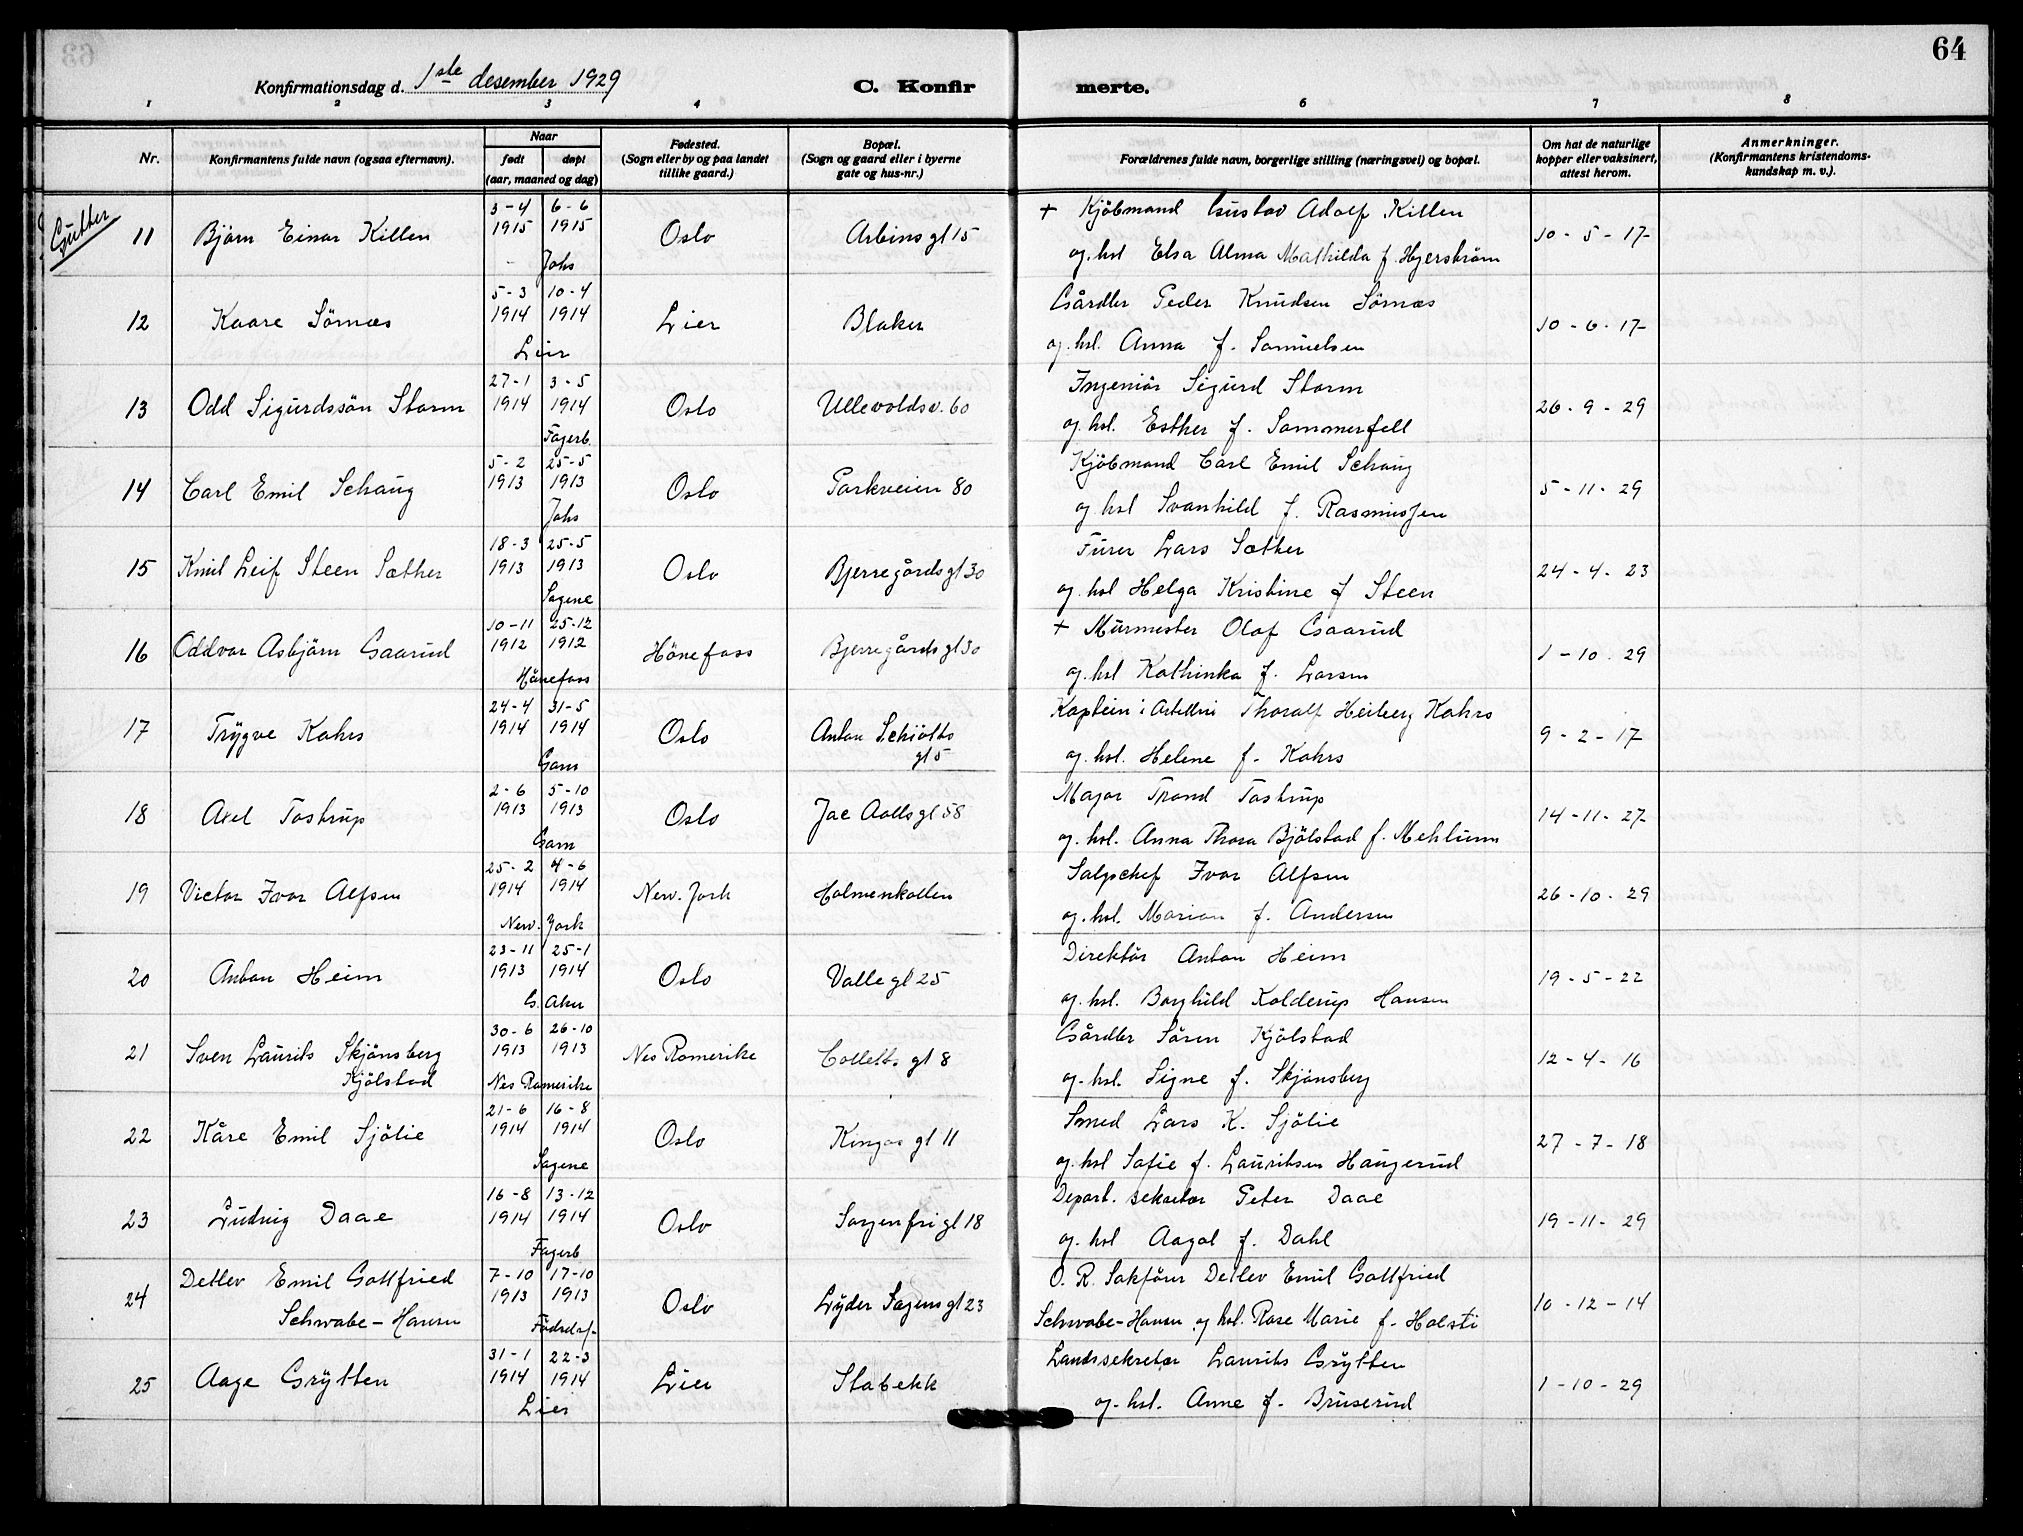 64
Konfirmationsdag d. 1ste desember 1929
C. Konfirmerte.
1 2 3 4 5 6 7 8
Nr.
Konfirmantens fulde navn (ogsaa efternavn).
Naar
født døpt
(aar, maaned og dag)
Fødested.
(Sogn eller by og paa landet
tillike gaard.)
Bopæl.
(Sogn og gaard eller i byerne
gate og hus-nr.)
Forældrenes fulde navn, borgerlige stilling (næringsvei) og bopæl.
Om hat de naturlige
kopper eller vaksinert,
attest herom.
Anmerkninger.
(Konfirmantens kristendoms-
kundskap m. v.).
Gutter
11 Björn Einar Killen 3-4 1915 6-6 1915 Johs Oslo Arbins gt 15
+ Kjöbmand Gustav Adolf Killen
og hst Elsa Alma Mathilda f. Hjerström 10-5-17
12 Kaare Sörnæs 5-3 1914 10-4 1914 Lier Lier Blaker
Gårdbr Peder Knudsen Sörnæs
og hst. Anna f. Samuelsen 10-6-17
13 Odd Sigurdssön Storm 27-1 1914 3-5 1914 Fagerb. Oslo Ullevoldsv. 60
Ingeniör Sigurd Storm
og hst. Esther f. Sommerfelt 26-9-29
14 Carl Emil Schaug 5-2 1913 25-5 1913 Johs Oslo Parkveien 80
Kjöbmand Carl Emil Schaug
og hst Svanhild f. Rasmussen 5-11-29
15 Knut Leif Steen Sæther 18-3 1913 25-5 1913 Sagene Oslo Bjerregårds gt 30
Furer Lars Sæther
og hst Helga Kristine f Steen 24-4-23
16 Oddvar Asbjörn Gaarud 10-11 1912 25-12 1912 Hönefoss Hönefoss Bjerregårds gt 30
+ Murmester Olaf Gaarud
og hst Kathinka f. Larsen 1-10-29
17 Trygve Kahrs 24-4 1914 31-5 1914 Gam Oslo Anton Schiötts
gt 5
Kaptein i Artilleri Thoralf Heiberg Kahrs
og hst. Helene f. Kahrs 9-2-17
18 Axel Tostrup 2-6 1913 5-10 1913 Gam Oslo Jac Aalls gt 58
Major Trond Tostrup
og hst. Anna Thora Bjölstad f. Mehlum 14-11-27
19 Victor Ivar Alfsen 25-2 1914 4-6 1914 New. York New. York Holmenkollen
Salgschef Ivar Alfsen
og hst. Marian f. Andersen 26-10-29
20 Anton Heim 23-11 1913 25-1 1914 G. Aker Oslo Valle gt 25
Direktör Anton Heim
og hst. Borghild Kolderup Hansen 19-5-22
21 Sven Laurits Skjönsberg
Kjölstad 30-6 1913 26-10 1913 Nes Romerike Nes Romerike Colletts gt 8
Gårdbr Sören Kjölstad
og hst. Signe f. Skjönsberg 12-4-16
22 Kåre Emil Sjölie 21-6 1914 16-8 1914 Sagene Oslo Kingos gt 11
Smed Lars K. Sjölie
og hst Sofie f. Lauritsen Haugerud 27-7-18
23 Ludvig Daae 16-8 1914 13-12 1914 Fagerb Oslo Sorgenfri gt 18
Depart. sekretær Peter Daae
og hst Aagot f. Dahl 19-11-29
24 Detlev Emil Gottfried
Schwabe-Hansen 7-10 1913 17-10 1913 Födselsf. Oslo Lyder Sagens gt 23
O. R. Sakförer Detlev Emil Gottfried
Schwabe-Hansen og hst. Rose Marie f. Holsti 10-12-14
25 Aage Grytten 31-1 1914 22-3 1914 Lier Lier Stabekk
Landssekretær Laurits Grytten
og hst. Anne f. Bruserud 1-10-29